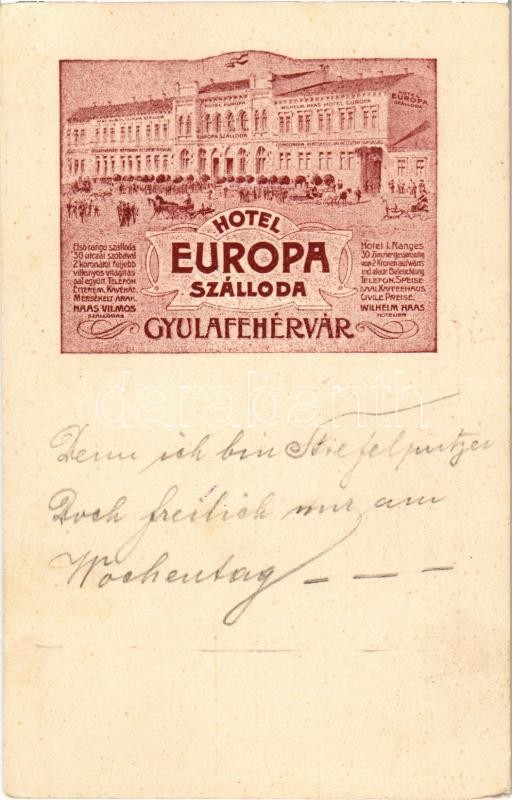 HOTEL EUROPA
WILHELM HAAS HOTEL EUROPA
EUROPA SZÁLLODA
HOTEL
EUROPA
SZÁLLODA
HOTEL
EUROPA
SZÁLLODA
GYULAFEHÉRVÁR
Első rangú szálloda
30 utczai szobával
2 koronától feljebb
villanyos világítás-
sal együtt. TELEFON.
ÉTTEREM. KÁVÉHÁZ.
MÉRSÉKELT ÁRAK.
HAAS VILMOS
SZÁLLODÁS
Hotel I. Ranges
30 Zimmer gassenseitig
von 2 Kronen aufwärts
incl. elektr. Beleuchtung.
TELEFON. SPEISE-
SAAL. KAFFEEHAUS.
CIVILE PREISE.
WILHELM HAAS
HOTELIER
darabanth
Denn ich bin Stiefelputzer
Doch freilich nur am
Wochentag _ _ _